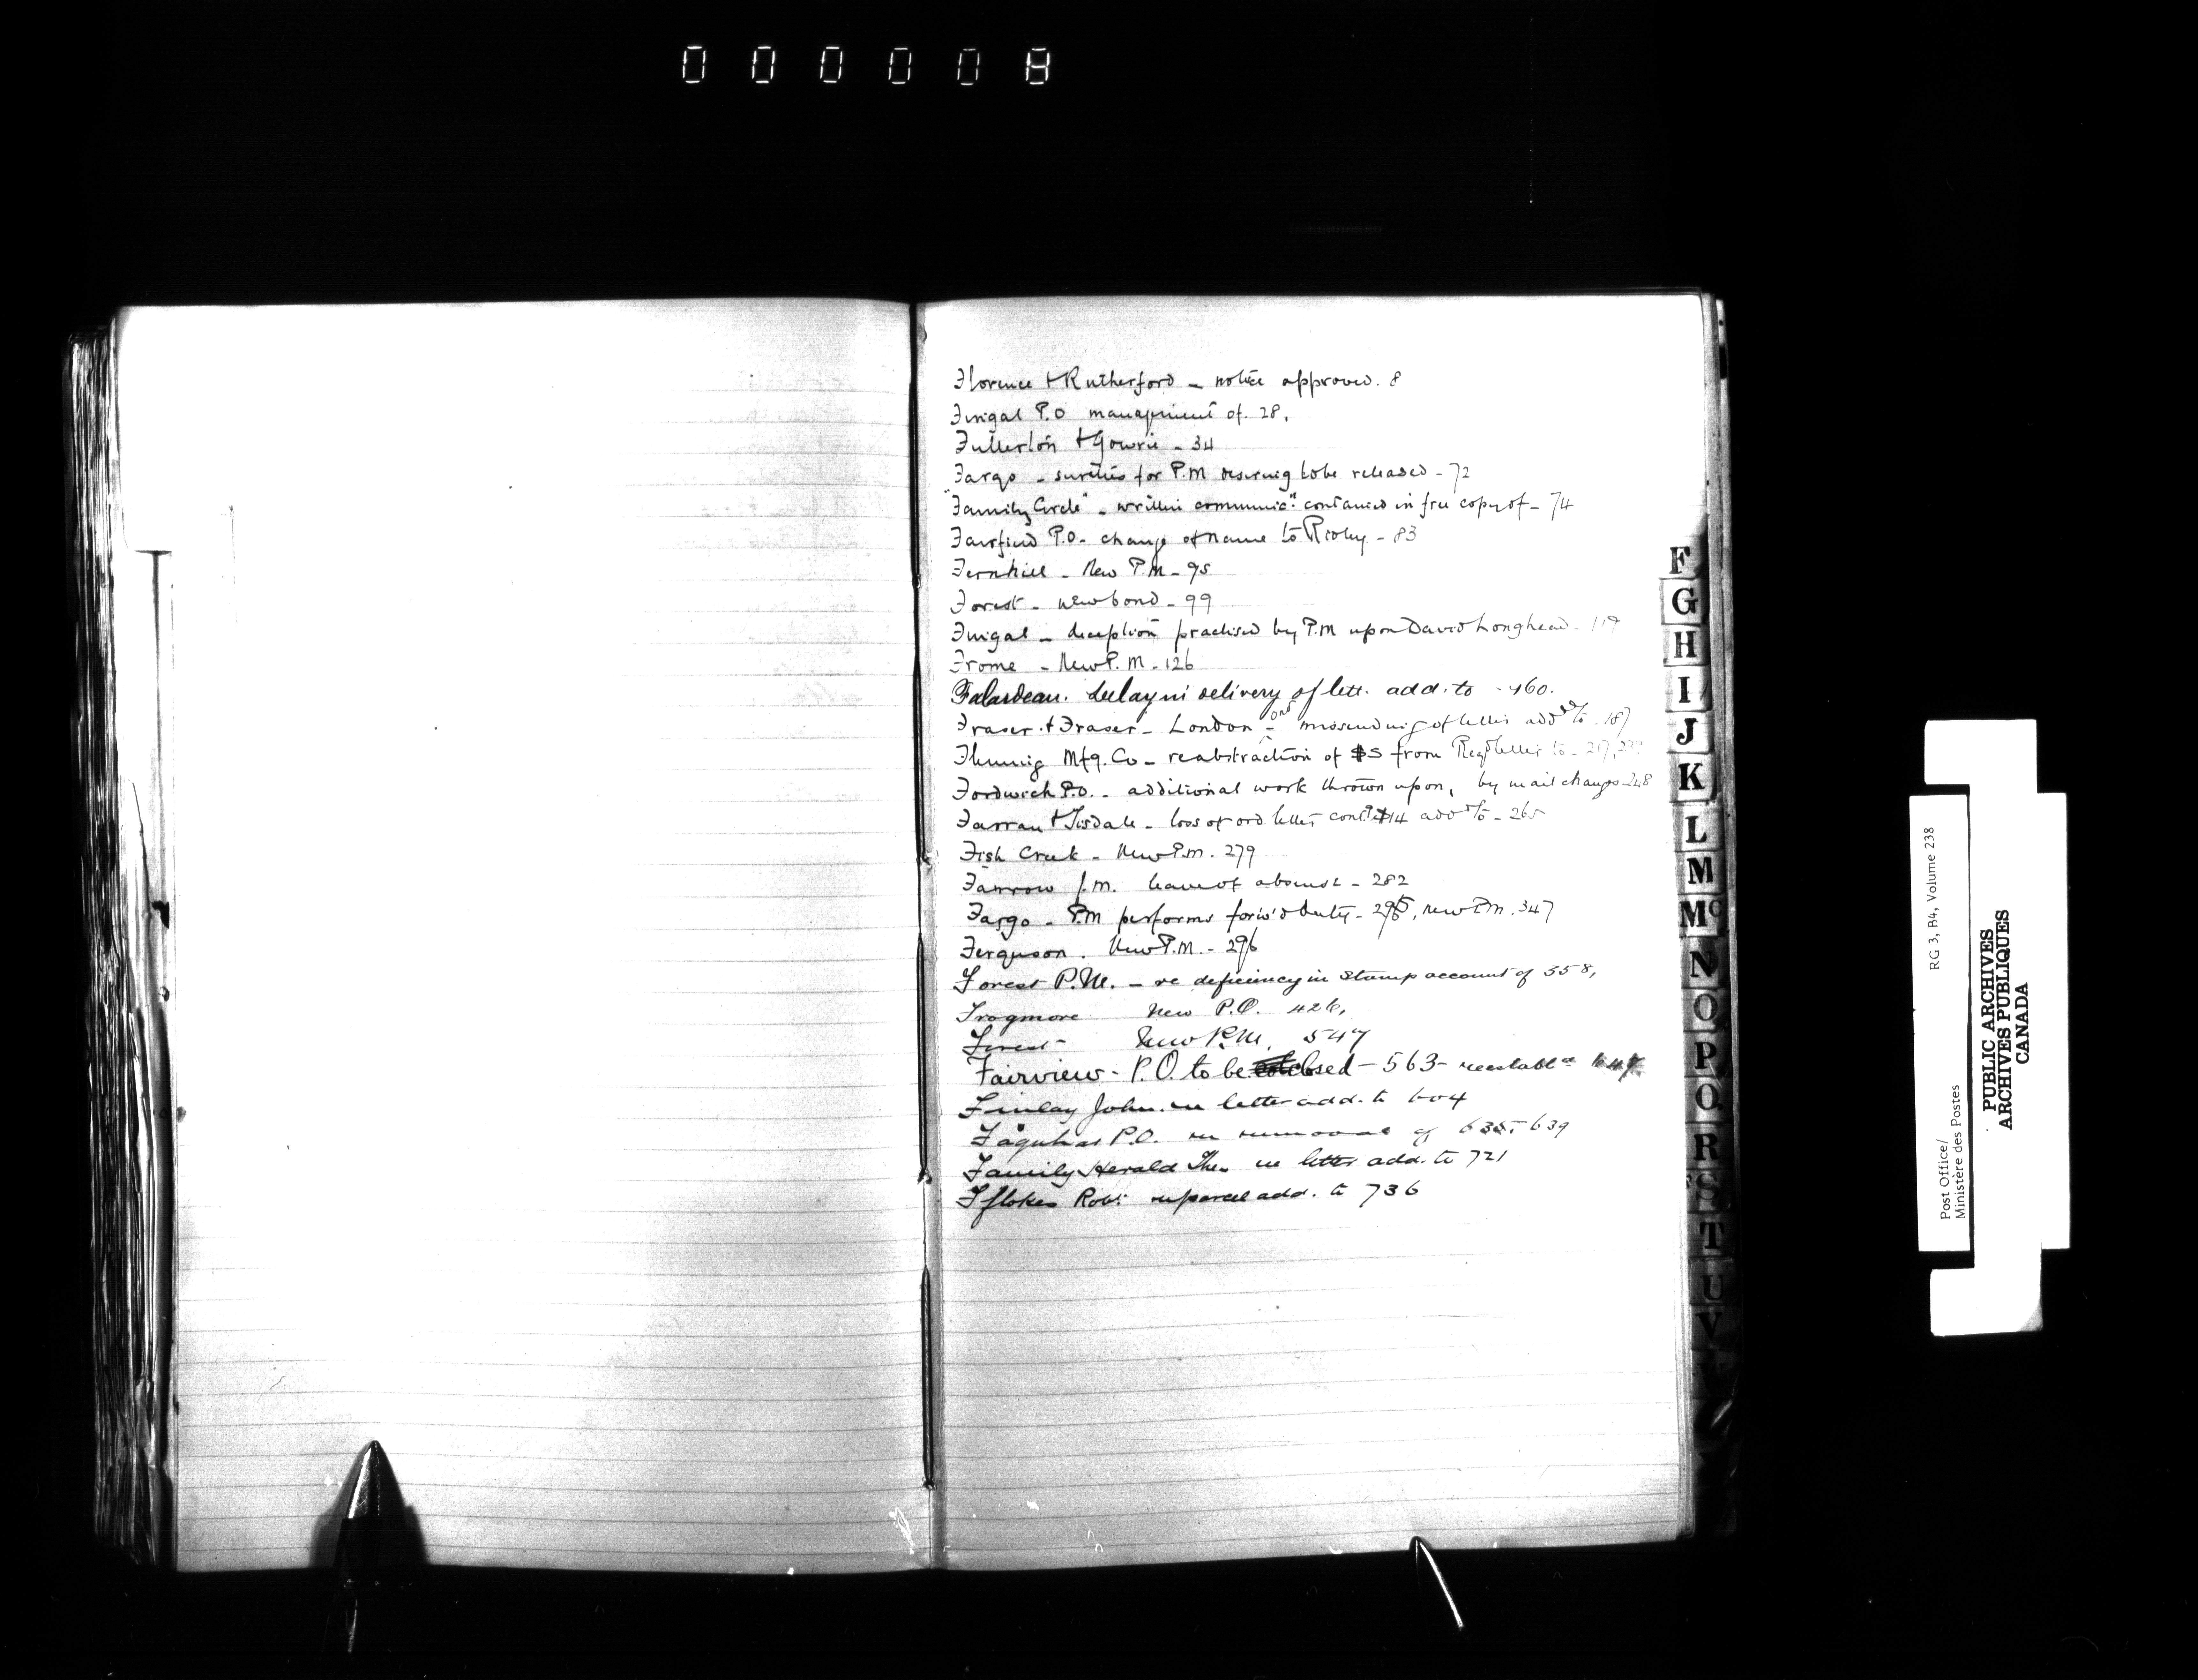 000008
Florence & Rutherford - notice approved. 8
Fingal P.O management of. 28.
Fullerton & Gowrie - 34
Fargo - sureties for P.M desiring to be released - 72
"Family Circle" - written communicn. contained in free copy of - 74
Fairfield P.O. - change of name to - 83
Fernhill - New P.M - 95
Forest - new bond - 99
Fingal - deception practised by P.M upon David Longhead - 119
Frome - New P.M. - 126
Falardeau. Delay in delivery of lett. add. to - 160.
Fraser & Fraser - London - missending of letter addd to - 187
Fleming Mfg. Co - reabstraction of $5 from Regd letter to - 217,
Fordwich P.O. - additional work thrown upon, by mail change 248
Farran & Tisdale - loss of ord letter contg $14 addd to - 265
Fish Creek - New P.M. 279
Farrow J.M. leave of absence - 282
Fargo - P.M performs forw'd duty - 295, new P.M. 347
Ferguson. New P.M. - 296
Forest P.M. - re deficiency in Stamp account of 358,
Frogmore New P.O. 426,
Forest - New P.M. 547
Fairview - P.O. to be closed - 563 -
Finlay John. re letter add. to 604
P.O. re removal of 639
Family Herald The re letter add. to 721
Robt re parcel add. to 736
F
G
H
I
J
K
L
M
Mc
N
O
P
Q
R
S
T
U
V
Post Office/
Ministère des Postes
RG 3, B4, Volume 238
PUBLIC ARCHIVES
ARCHIVES PUBLIQUES
CANADA